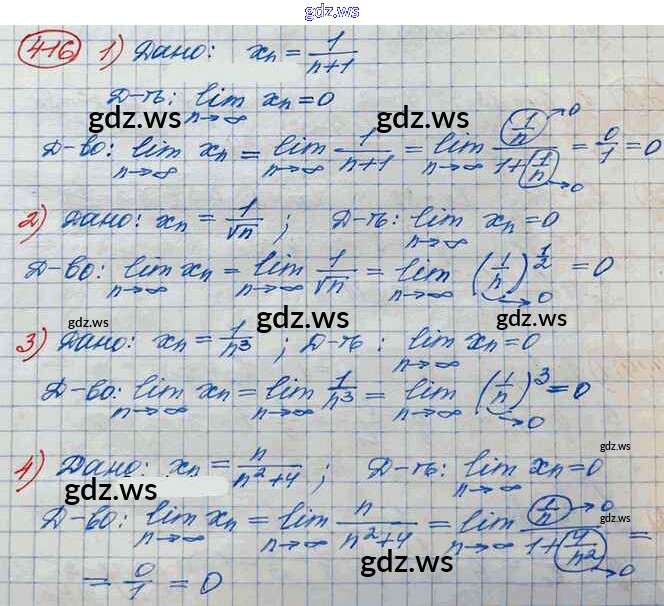 gdz.ws
416 1) Дано: xₙ = 1/(n+1)
Д-ть: lim n→∞ xₙ = 0
gdz.ws gdz.ws
Д-во: lim n→∞ xₙ = lim n→∞ 1/(n+1) = lim n→∞ (1/n →0)/(1 + 1/n →0) = 0/1 = 0
2) Дано: xₙ = 1/√n ; Д-ть: lim n→∞ xₙ = 0
Д-во: lim n→∞ xₙ = lim n→∞ 1/√n = lim n→∞ (1/n →0)^(1/2) = 0
gdz.ws gdz.ws gdz.ws
3) Дано: xₙ = 1/n³ ; Д-ть: lim n→∞ xₙ = 0
Д-во: lim n→∞ xₙ = lim n→∞ 1/n³ = lim n→∞ (1/n →0)³ = 0
gdz.ws
4) Дано: xₙ = n/(n²+4) ; Д-ть: lim n→∞ xₙ = 0
gdz.ws
Д-во: lim n→∞ xₙ = lim n→∞ n/(n²+4) = lim n→∞ (1/n →0)/(1 + 4/n² →0) =
gdz.ws
= 0/1 = 0